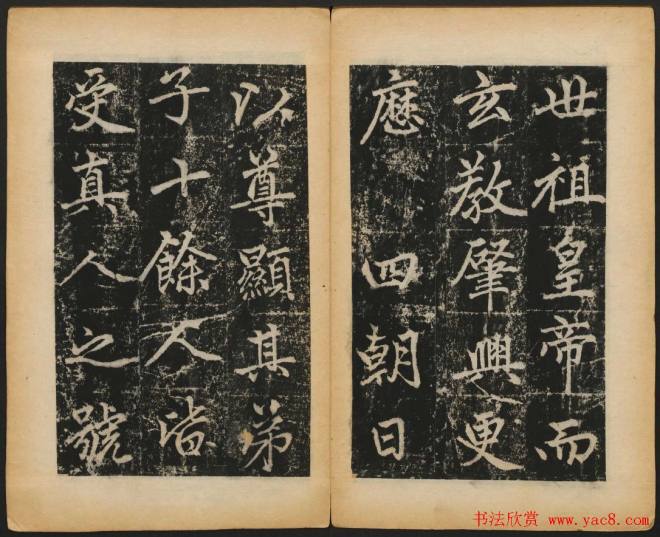 世祖皇帝而
玄教肇興更
歷 四朝日
以尊顯其弟
子十餘人皆
受真人之號
书法欣赏 www.yac8.com